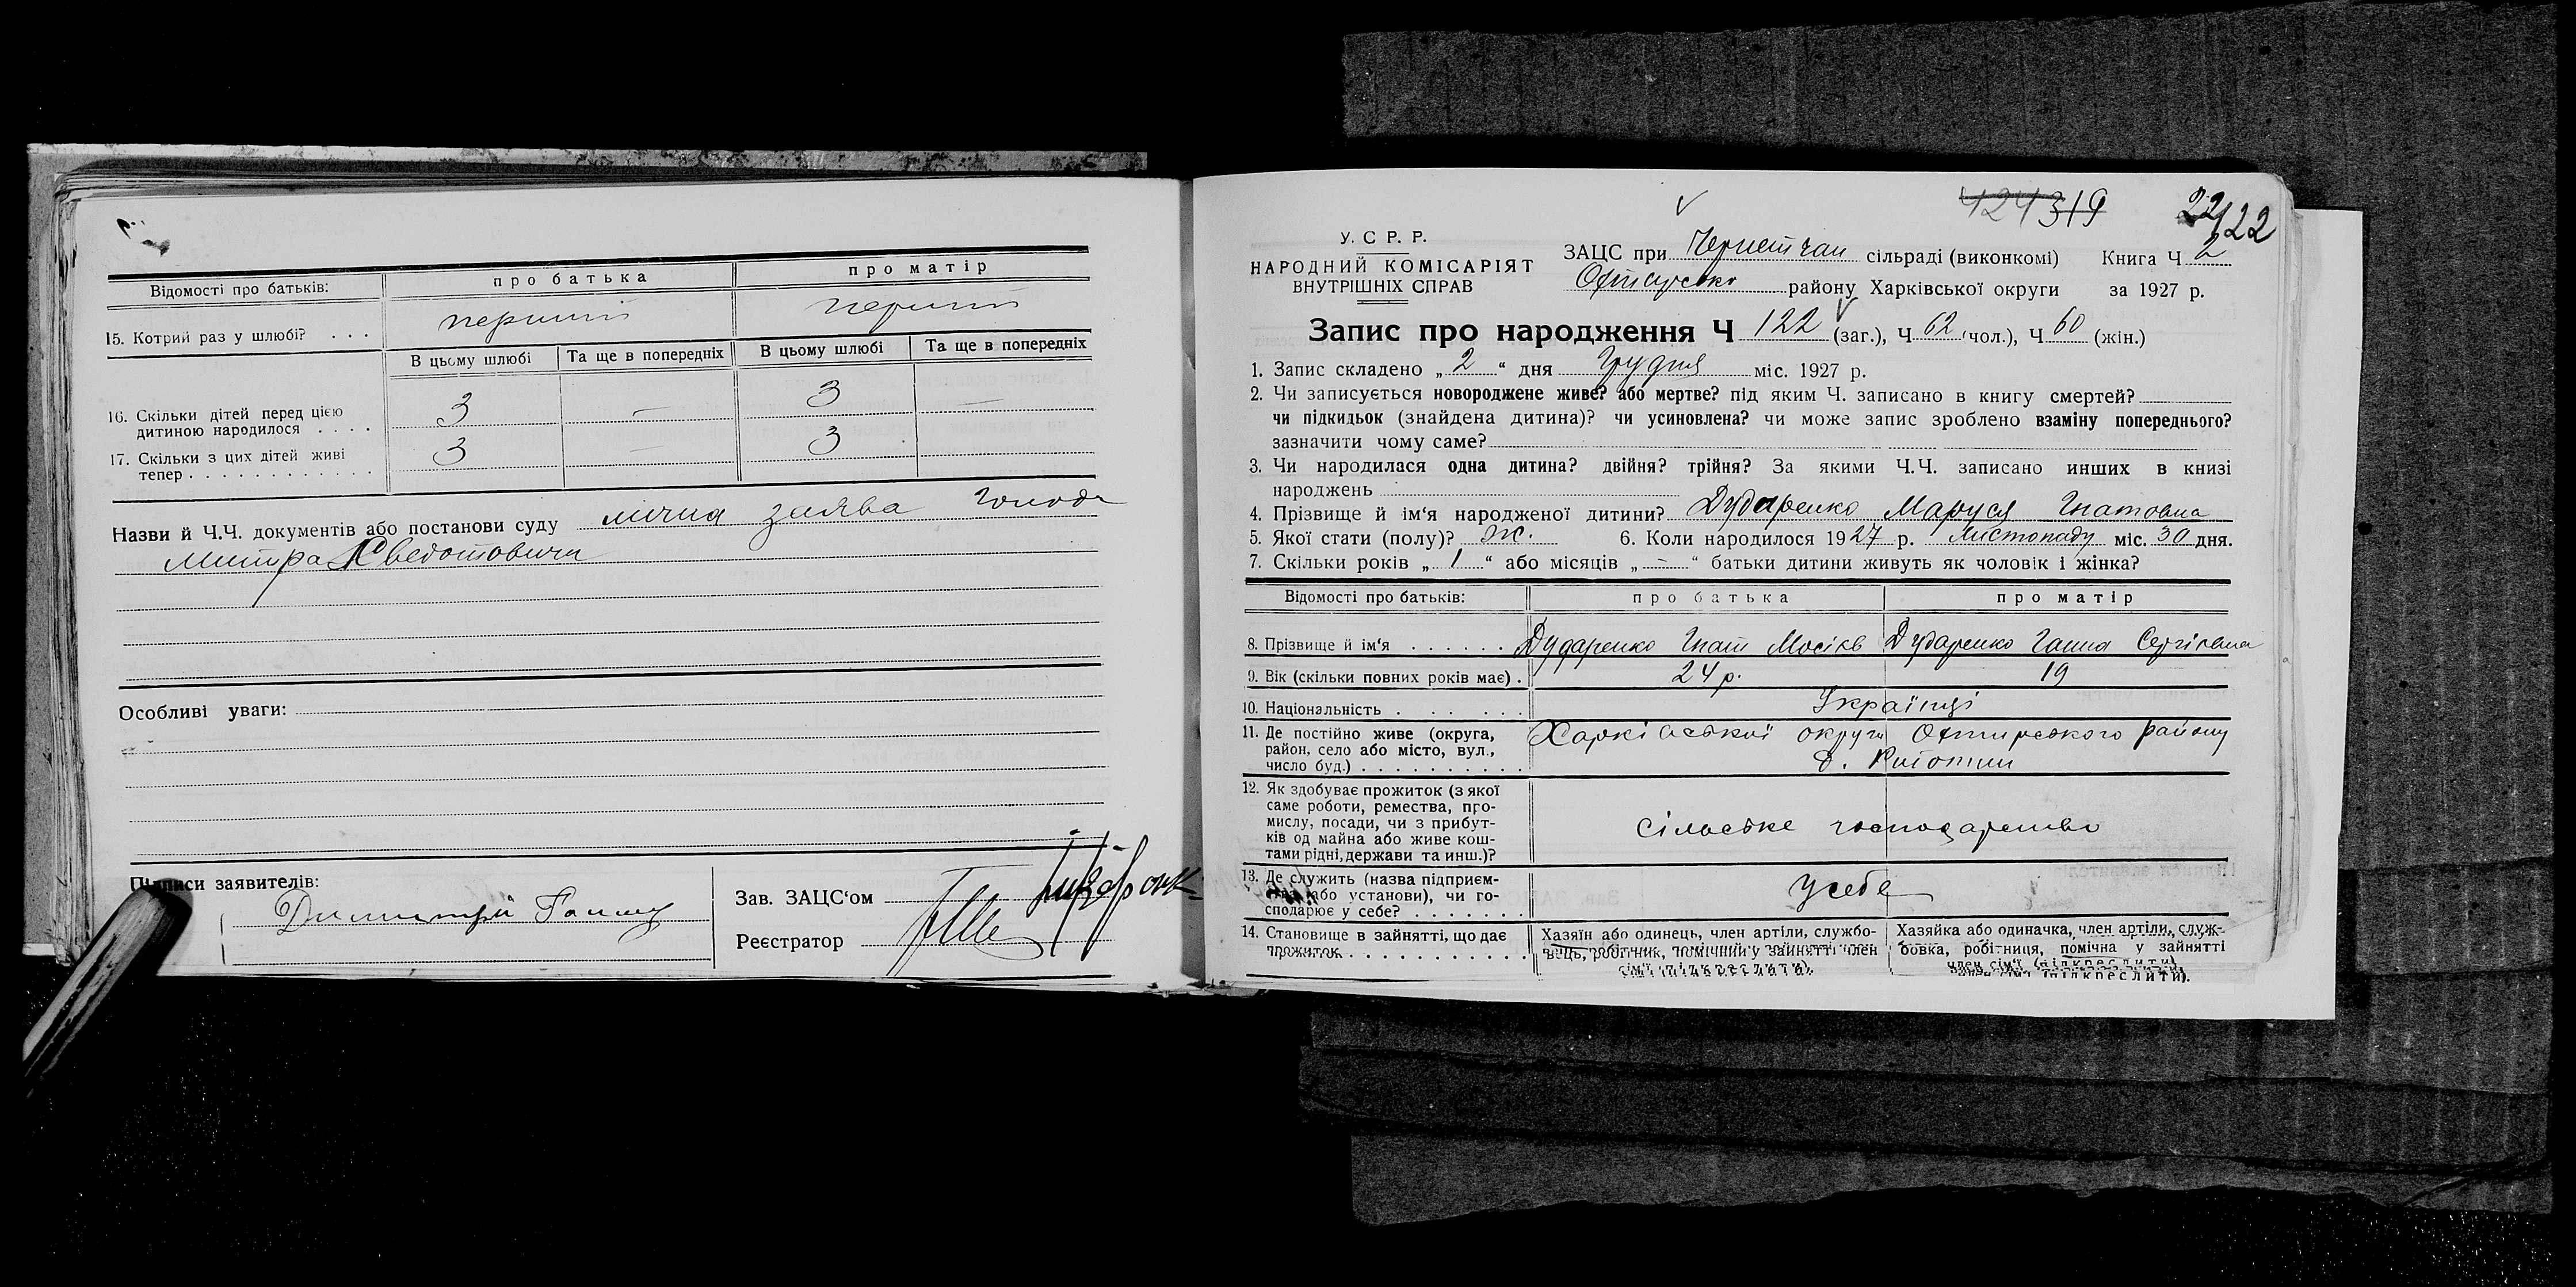 Відомості про батьків: про батька про матір
15. Котрий раз у шлюбі? . . . перший перший
В цьому шлюбі Та ще в попередніх В цьому шлюбі Та ще в попередніх
16. Скільки дітей перед цією
дитиною народилося . . . . 3 — 3 —
17. Скільки з цих дітей живі
тепер . . . . . . . . . . . 3 — 3
Назви й Ч.Ч. документів або постанови суду лична заява
Митра
Особливі уваги:
Підписи заявителів:
Зав. ЗАЦС‘ом
Реєстратор
424 319 22 122
У. С Р. Р.
НАРОДНИЙ КОМІСАРІЯТ
ВНУТРІШНІХ СПРАВ
ЗАЦС при Чернетчан сільраді (виконкомі) Книга Ч 2
району Харківської округи за 1927 р.
Запис про народження Ч 122 (заг.), Ч 62 (чол.), Ч 60 (жін.)
1. Запис складено „ 2 “ дня Грудня міс. 1927 р.
2. Чи записується новороджене живе? або мертве? під яким Ч. записано в книгу смертей?
чи підкидьок (знайдена дитина)? чи усиновлена? чи може запис зроблено взаміну попереднього?
зазначити чому саме?
3. Чи народилася одна дитина? двійня? трійня? За якими Ч.Ч. записано инших в книзі
народжень
4. Прізвище й ім‘я народженої дитини? Дударенко Маруся Гнатовна
5. Якої стати (полу)? Ж. 6. Коли народилося 1927 р. Листопаду міс. 30 дня.
7. Скільки років „ 1 “ або місяців „ — “ батьки дитини живуть як чоловік і жінка?
Відомості про батьків: про батька про матір
8. Прізвище й ім‘я . . . . . . Дударенко Гнат Мосієв Дударенко Ганна Сергіевна
9. Вік (скільки повних років має) . 24 р. 19
10. Національність . . . . . Українці
11. Де постійно живе (округа,
район, село або місто, вул.,
число буд.) . . . . . . . . . . Харківської округи Охтирського району
12. Як здобуває прожиток (з якої
саме роботи, ремества, про-
мислу, посади, чи з прибут-
ків од майна або живе кош-
тами рідні, держави та инш.)? сільське господарство
13. Де служить (назва підприєм-
ства або установи), чи го-
сподарює у себе? . . . . . . . у себе
14. Становище в зайнятті, що дає
прожиток . . . . . . . . . . .
Хазяїн або одинець, член артіли, службо-
вець, робітник, помічний у зайнятті член
сім'ї (підкреслити).
Хазяйка або одиначка, член артіли, служ-
бовка, робітниця, помічна у зайнятті
член сім'ї (підкреслити).